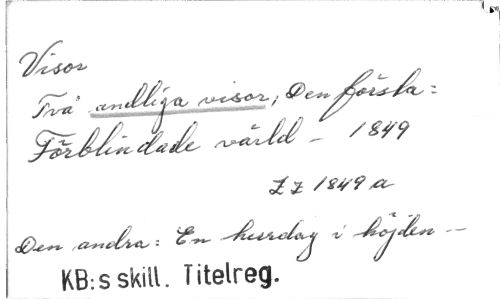 Visor
Två andliga visor; Den första:
Förblindade värld – 1849
ZZ 1849 a
Den andra: En herrdag i höjden --
KB:s skill. Titelreg.